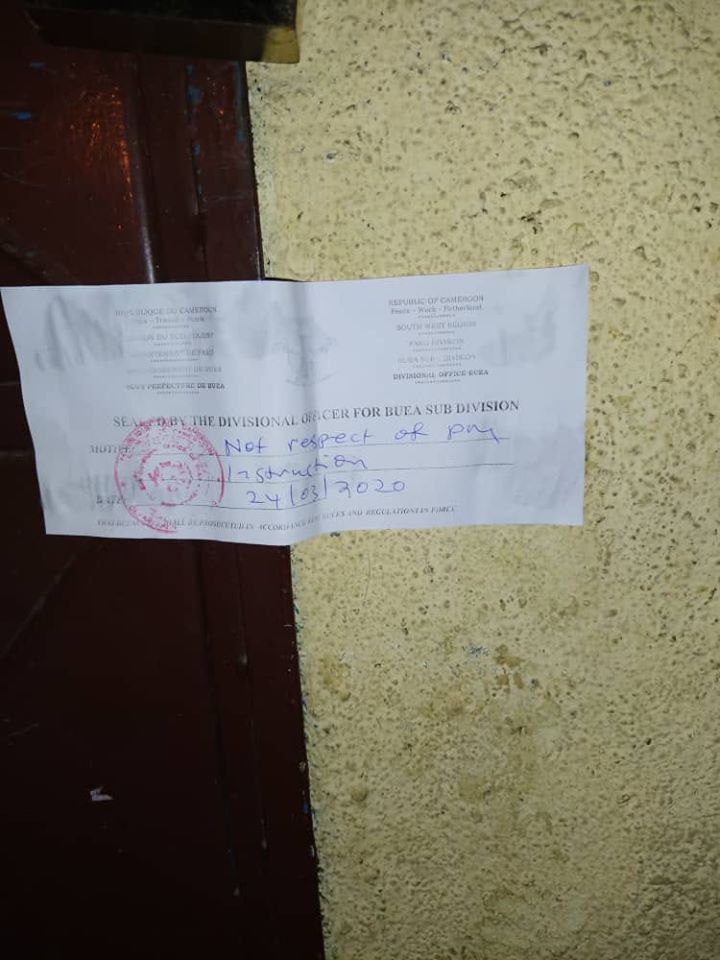 REPUBLIQUE DU CAMEROUN
Paix - Travail - Patrie
REGION DU SUD OUEST
DEPARTEMENT DE FAKO
ARRONDISSEMENT DE BUEA
SOUS PREFECTURE DE BUEA
REPUBLIC OF CAMEROON
Peace - Work - Fatherland
SOUTH WEST REGION
FAKO DIVISION
BUEA SUB - DIVISION
DIVISIONAL OFFICE BUEA
SEALED BY THE DIVISIONAL OFFICER FOR BUEA SUB DIVISION
MOTIVE Not respect of
Instruction
DATE 24/03/2020
SHALL BE PROSECUTED IN ACCORDANCE RULES AND REGULATIONS IN FORCE